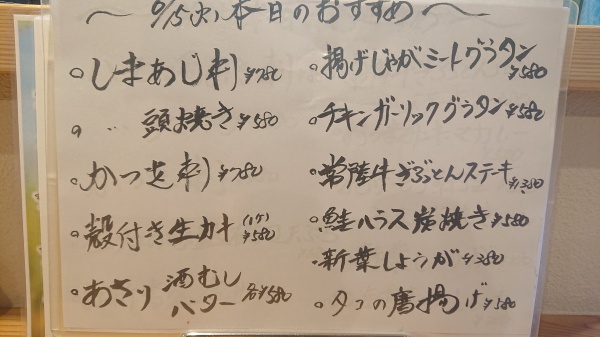 〜 9/5(火) 本日のおすすめ 〜
○しまあじ刺 ¥780
〃 〃 頭焼き ¥580
○かつを刺 ¥780
○殻付き生カキ (1ケ) ¥580
○あさり 酒むし バター 各¥580
○揚げじゃがミートグラタン ¥580
○チキンガーリックグラタン ¥580
○常陸牛ざぶとんステーキ ¥1,380
○鮭ハラス炭焼き ¥580
○新葉しょうが ¥380
○タコの唐揚げ ¥580